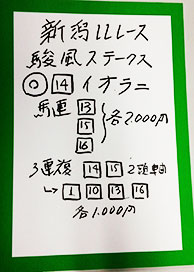 新潟11レース
駿風ステークス
◎ 14 イオラニ
馬連 13
15 各2,000円
16
3連複 14 15 2頭軸
→ 1 10 13 16
各1,000円